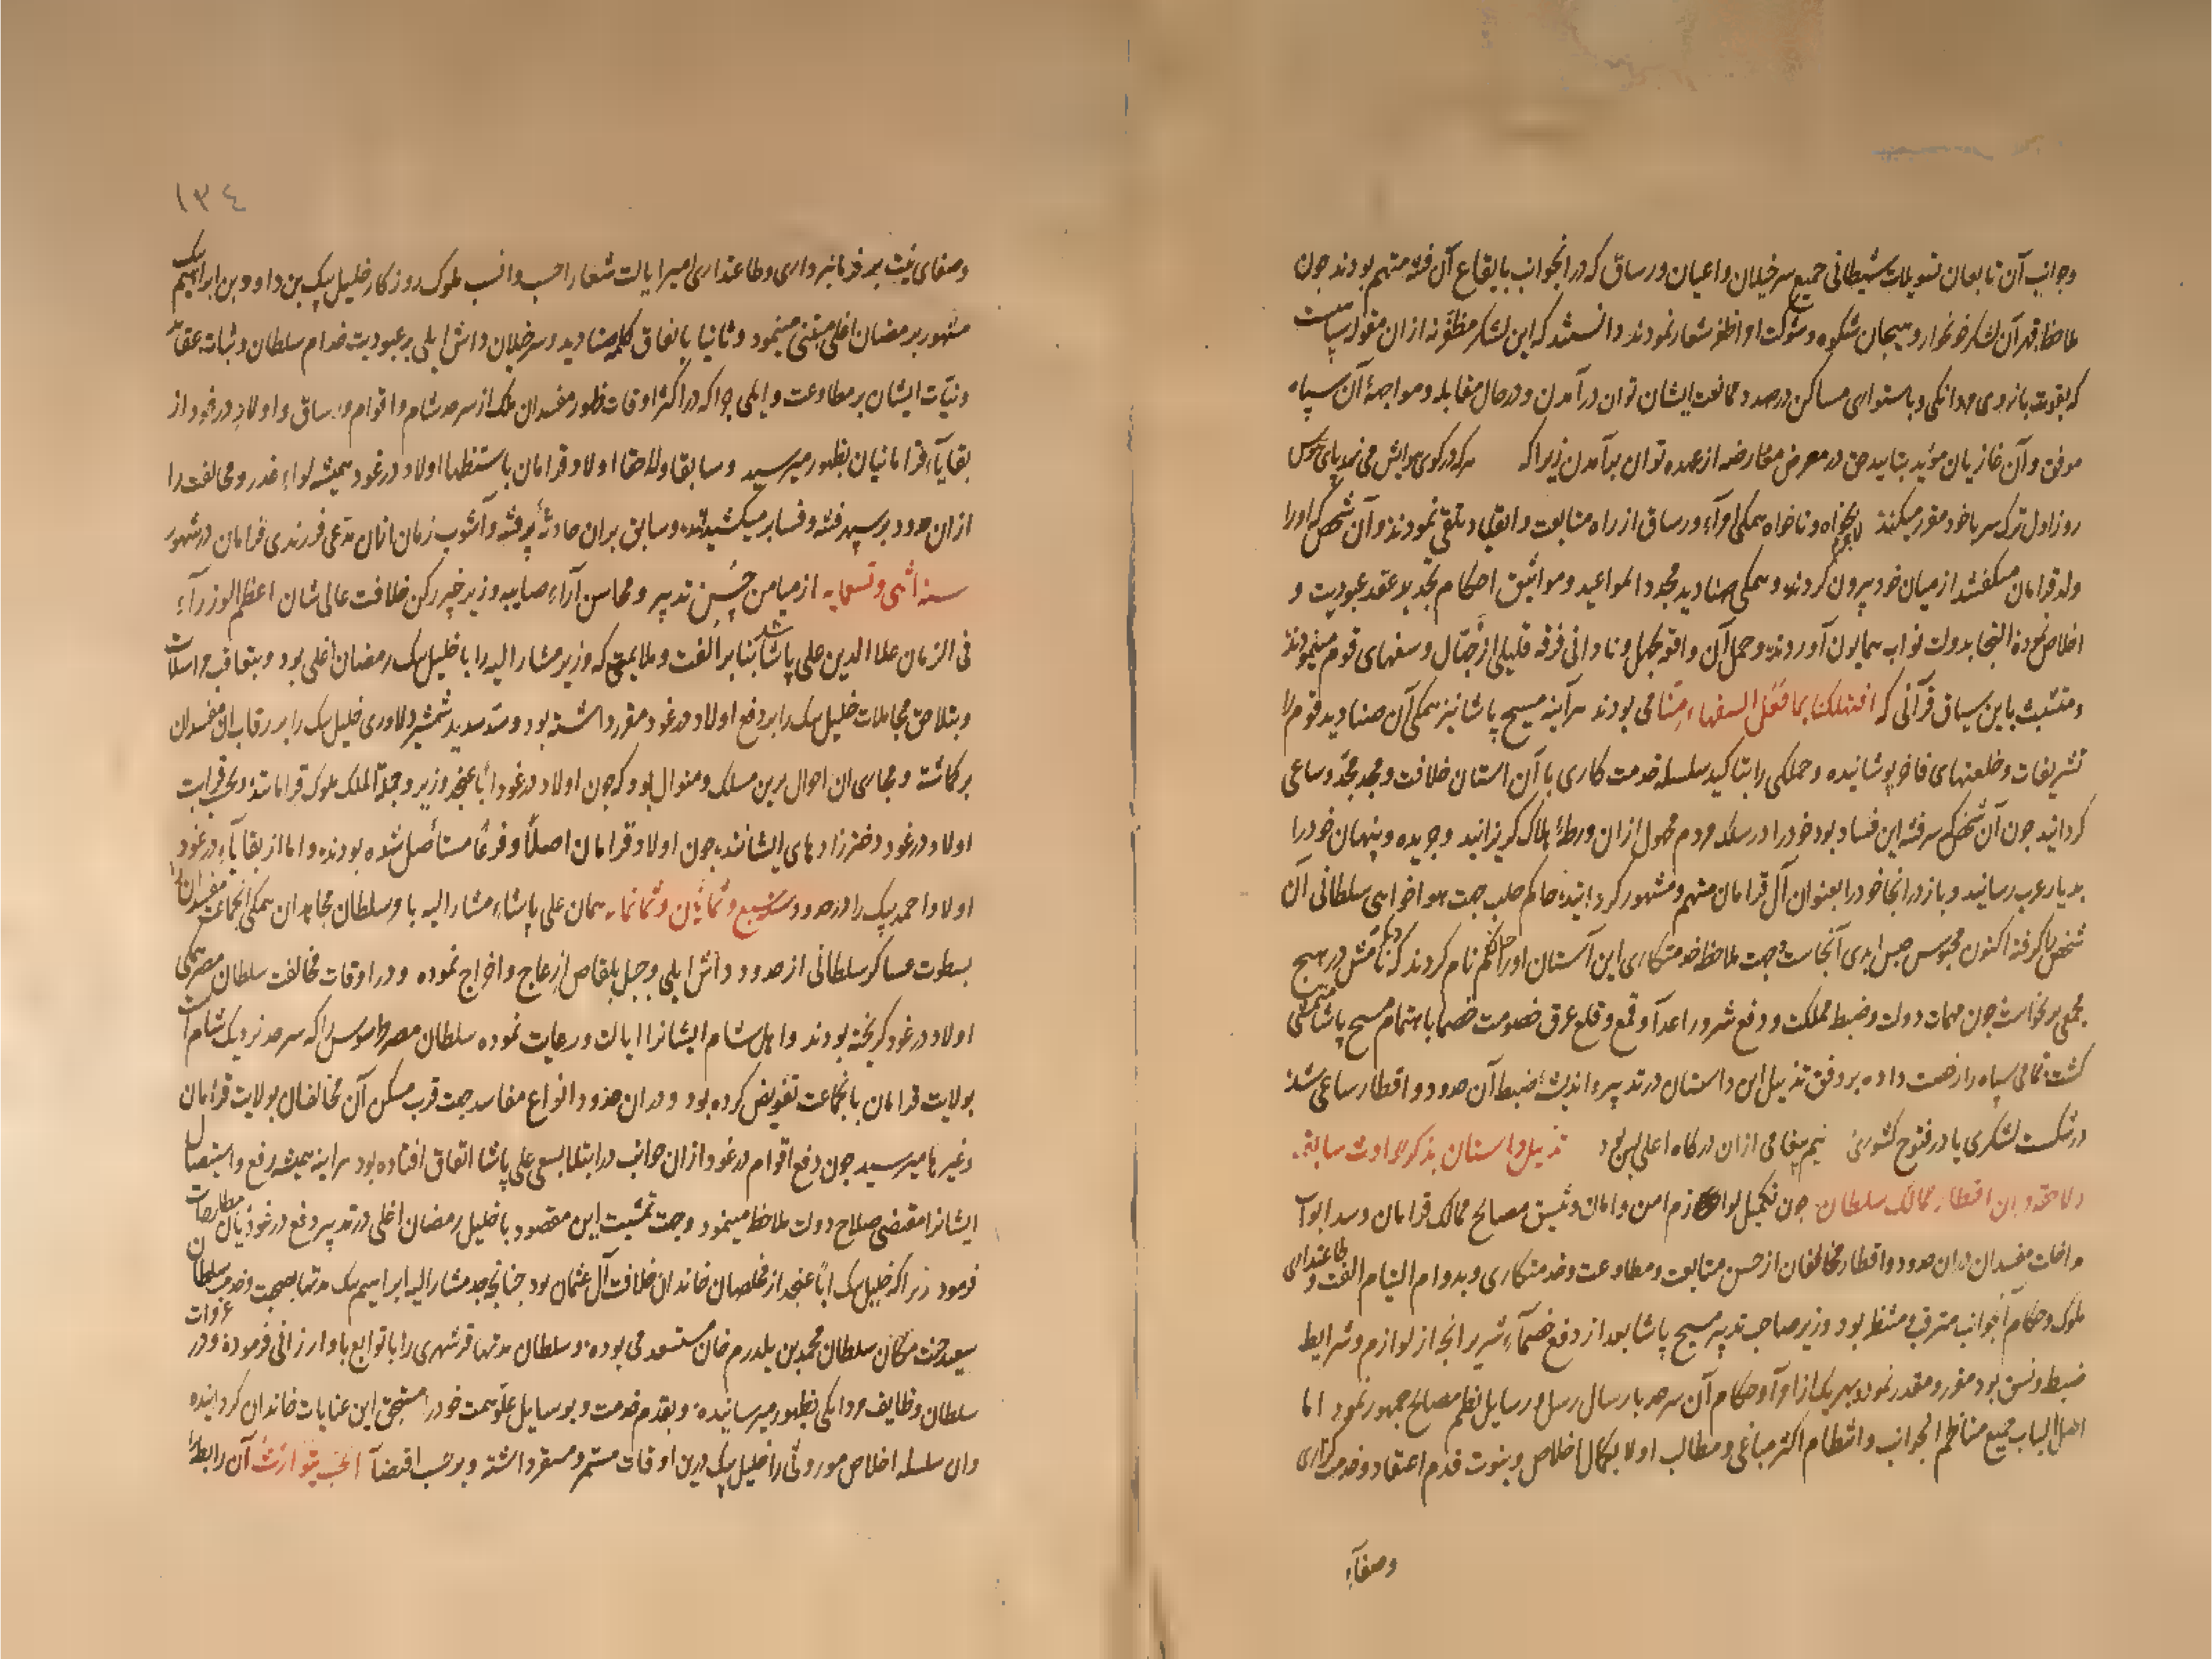 وجوانب آن تابعان تسویلات شیطانی جمیع سرخیلان و اعیان ورساق که در آنجوانب بایقاع آن فتنه متهم بودند چون
ملاحظه قهر آن لشکر خونخوار و هیجان شکوه و شوکت او اظفر شعار نمودند دانستند که این لشکر مظفر نه ازان مقوله سپاست
که بقوت بازوی مردانکی و باستواری مساکن در صدد ممانعت ایشان توان درآمدن و در حال مقابله و مواجههٔ آن سپاه
موفق و آن غازیان مؤید بتایید حق در معرض معارضه از عهده توان برآمدن زیرا که هر که در کوی هوایش می نهد پای هوس
روز اول ترک سر با خود مقرر میکند لاجرم بخواه و ناخواه همکی امرآء ورساق از راه متابعت و انقیاد تلقی نمودند و آن شخص که اورا
ولد قرامان میکفتند از میان خود بیرون کردند و همکی صنادید مجدد المواعید و مواثیق احکام تجدید عقد عبودیت و
اخلاص نموده التجا بدولت نواب همایون آوردند و حمل آن واقعه بجهل و نادانی فرقه قلیلی از جهال و سفهای قوم مینمودند
و متشبث باین سیاق قرآنی که افتهلکنا بما فعل السفهاء منا می بودند هرآینه مسیح پاشا نیز همکی آن صنادید قوم را
تشریفات و خلعتهای فاخر پوشانیده و جملکی را بتاکید سلسله خدمت کاری با آن استان خلافت و مجد مجد و ساعی
کردانید چون آن شخص که سر فتنه این فساد بود خودرا در سلک مردم مجهول ازان ورطهٔ هلاک کریزانید و جریده و پنهان خودرا
بدیار عرب رسانید و باز در انجا خودرا بعنوان آل قرامان متهم و مشهور کردانید حاکم حلب جهت هواخواهی سلطانی آن
شخص را کرفته اکنون محبوس حبس ابدی آنجاست و جهت ملاحظه خدمتکاری این آستان اورا نام کردند که نامش در هیچ
مجمعی برنخواست چون مهمات دولت و ضبط مملکت و دفع شرور اعدآ و قمع و قلع عرق خصومت خصما باهتمام مسیح پاشا متمشی
کشت تمامی سپاه را رخصت داده بر وفق تذییل این داستان در تدبیر و اندیشه ضبط آن حدود و اقطار ساعی شد
در شکست لشکری یا در فتوح کشوری نیم پیغامی ازان درکاه اعلی بس بود تذییل داستان بذکر حوادث سابقه
و لاحقه در ان اقطار ممالک سلطان چون تکمیل لوازم امن و امان و تنسیق مصالح ممالک قرامان و سد ابواب
و آفات مفسدان دران حدود و اقطار مخالفان از حسن متابعت و مطاوعت و خدمتکاری و بدوام التیام الفت و طاعتداری
ملوک و حکام آنجوانب مترقب و منتظر بود وزیر صاحب تدبیر مسیح پاشا بعد از دفع خصمآء شریر انجا از لوازم و شرایط
ضبط و نسق بود مقرر و مقدر نمود و بهر یک از امرآ و حکام آن سرحد بارسال رسل و رسایل نظم مصالح جمهور نمود اما
اصل الباب جمیع مناظم الجوانب و انتظام اکثر مباغی و مطالب اولا بکمال اخلاص و ثبوت قدم اعتقاد و خدمتکاری
وصفآء
١٣٤
وصفای نیت بر فرمانبرداری و طاعتداری امیر ایالت شعار احسب و انسب ملوک روزکار خلیل بیک بن داود بن ابراهیم بیک
مشهور بر رمضان اغلی مبتنی مینمود و ثانیا باتفاق کلمه صنادید و سرخیلان داش ایلی بر عبودیت خدام سلطان و ثبات عقاید
و نیات ایشان بر مطاوعت و ایلی چرا که در اکثر اوقات ظهور مفسدان ملک از سرحد شام و اقوام ورساق و اولاد درغود از
بقایآء قرامانیان بظهور میرسید و سابقا ولاحقا اولاد قرامان باستظهار اولاد درغود همیشه لواء غدر و مخالفت را
ازان حدود بر سپهر فتنه و فسا بر میکشیدند و سابق بران حادثهٔ پر فتنه و آشوب زمان انان مدعی فرزندی قرامان در شهور
سنه اثنی و تسعمایه از میامن حسن تدبیر و محاسن آراء صایبه وزیر خبیر رکن خلافت عالی شان اعظم الوزرآء
فی الزمان علاء الدین علی پاشا شد بنا بر الفت و ملایمتی که وزیر مشار الیه را با خلیل بیک رمضان اغلی بود و بتعاقب مراسلات
و بتلاحق مجاملات خلیل بیک را بر دفع اولاد درغود مقرر داشته بود و سد سدید شمشیر دلاوری خلیل بیک را بر رقاب ان مفسدان
بر کماشته و مجاری ان احوال برین مسلک و منوال بود که چون اولاد درغود اباعنجد وزیر و جملة الملک ملوک قرامانند و بحسب قرابت
اولاد درغود دخترزادهای ایشانند، چون اولاد قرامان اصلا و فرعا مستأصل شده بودند و اما از بقایآء درغود
اولاد احمد بیک را در حدود سنه سبع و ثمانین و ثمانمایه همان علی پاشاء مشار الیه با مر سلطان مجاهدان همکی الجماعت مفسدان را
بسطوت عساکر سلطانی از حدود داش ایلی و جبل بلقاص ازعاج و اخراج نموده و در اوقات مخالفت سلطان مصر همکی
اولاد درغود کریخته بودند و اهل شام ایشانرا ایالت و رعایت نموده سلطان مصر طرسوس را که سرحد نزدیک شام است
بولایت قرامان بانجماعت تفویض کرده بود و دران حدود انواع مفاسد جهت قرب مسکن آن مخالفان بولایت قرامان
و غیرها میرسید چون دفع اقوام درغود ازان جوانب در ابتدا بسعی علی پاشا اتفاق افتاده بود هرآینه همیشه رفع و استیصال
ایشانرا مقتضی صلاح دولت ملاحظه مینمود و جهت تمشیت این مقصود با خلیل رمضان اغلی در تدبیر دفع درغودیان مطارحات
فرمود زیرا که خلیل بیک اباعنجد از مخلصان خاندان خلافت آل عثمان بود چنانچه جد مشار الیه ابراهیم بیک مدتها بصحبت و خدمت سلطان
سعید جنت مکان سلطان محمد بن یلدرم خان مستسعد می بوده و سلطان مدتها قرشهری را با توابع باو ارزانی فرموده و در غزوات
سلطان وظایف مردانکی بظهور میرسانیده و بقدم خدمت و بوسایل علو همت خودرا مستحق این عنایات خاندان کردانیده
وان سلسله اخلاص موروثی را خلیل بیک درین اوقات مستمر و مستقر داشته و بر حسب اقتضآء الحب یتوارث آن رابطهٔ